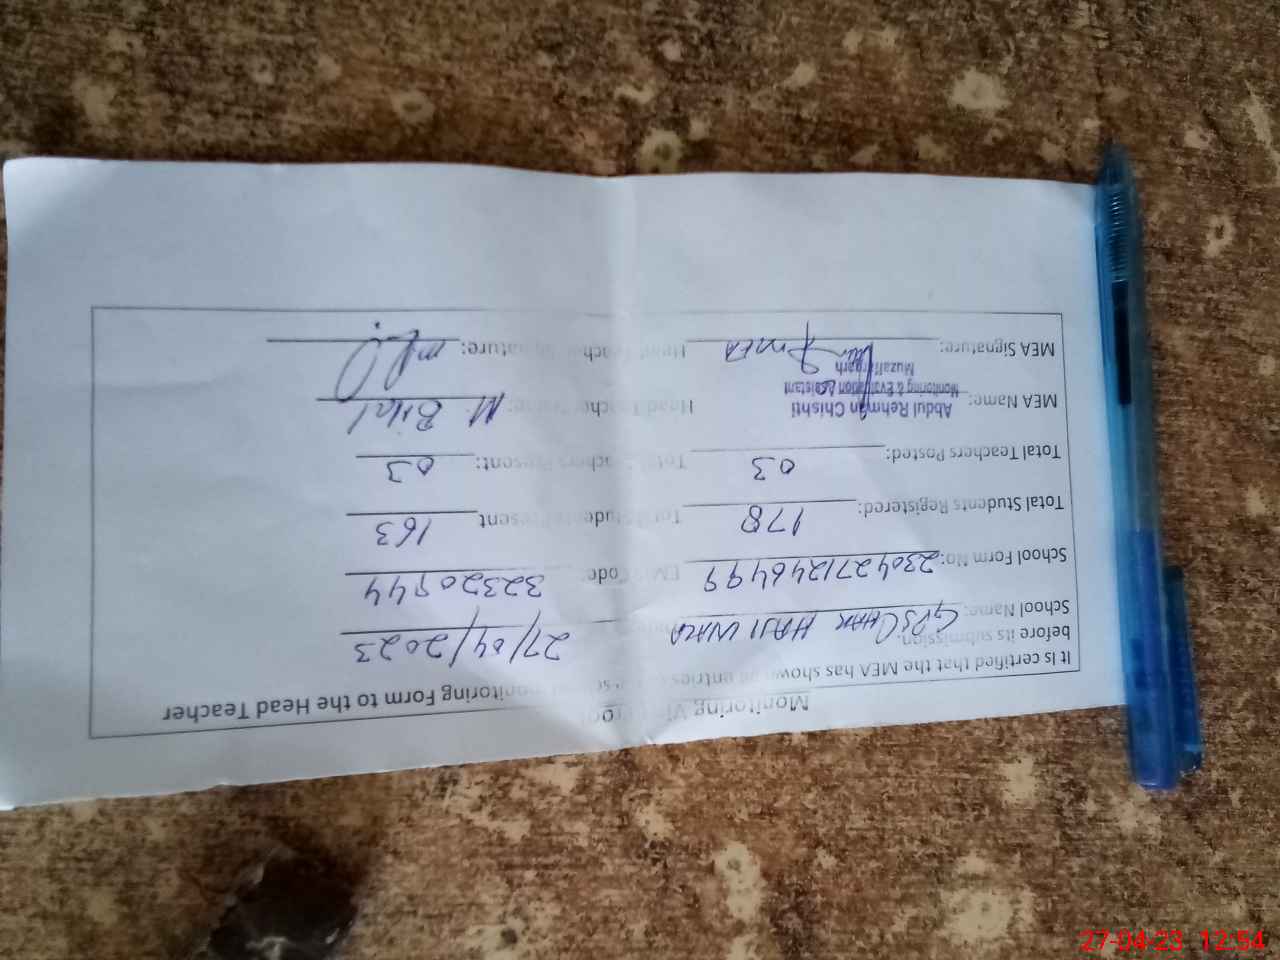 Monitoring Vi
It Is certified that the MEA has shown entries monitoring Form to the Head Teacher
before its submission.
School Name: GPS CHAK HAJI WALA 27/04/2023
School Form No: 230427124649 9 EM Code: 32320944
Total Students Registered: 178 Total Students Present 163
Total Teachers Posted: 03 Total Teachers Present: 03
MEA Name: Abdul Rehman Chishti Head Teacher M. Bilal
Monitoring & Evaluation Assistant
Muzaffargarh
MEA Signature: MEA Head Teacher Signature:
27-04-23 12:54